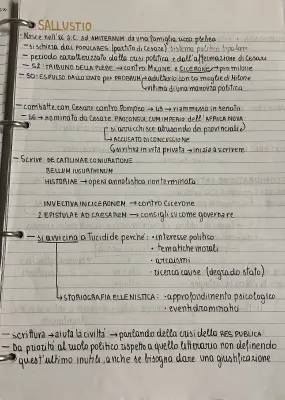 SALLUSTIO
- Nasce nell'86 a.C. ad AMITERNUM da una famiglia ricca plebea
- si schiera dai POPULARES (partito di Cesare) sistema politico bipolare
- periodo caratterizzato dalla crisi politica e dall'affermazione di Cesare
- 52: TRIBUNO DELLA PLEBE → contro MILONE e CICERONE → pro milone
- 50: ESPULSO DAL SENATO per PROBRUM → adulterio con la moglie di Milone
↳ vittima di una manovra politica
- combatte con Cesare contro Pompeo → 49 → riammesso in senato
- 46 → nominato da Cesare PROCONSUL CUM IMPERIO dell'AFRICA NOVA
si arricchisce abusando dei provinciali
↳ ACCUSATO DI CONCUSSIONE
↳ si ritira in vita privata → inizia a scrivere
- Scrive DE CATILINAE CONIURATIONE
BELLUM IUGURTHINUM
HISTORIAE → opera annalistica non terminata
INVECTIVA IN CICERONEM → contro Cicerone
2 EPISTULAE AD CAESAREM → consigli su come governare
- si avvicina a Tucidide perché: • interesse politico
• tematiche morali
• arcaismi
• ricerca cause (degrado stato)
↳ STORIOGRAFIA ELLENISTICA: • approfondimento psicologico
• eventi drammatici
- scrittura → aiuta la civiltà → parlando della crisi della RES PUBLICA
- Da priorità al ruolo politico rispetto a quello letterario non definendo
quest'ultimo inutile, anche se bisogna dare una giustificazione